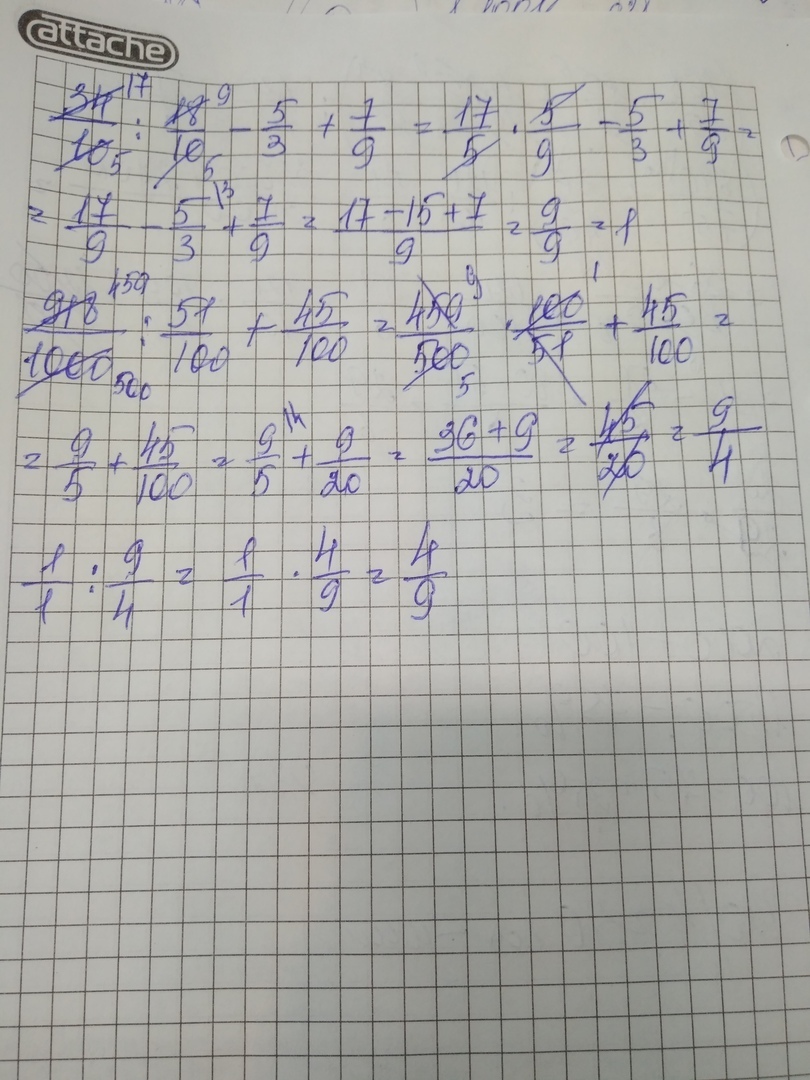 attache
34/10 17/5 : 18/10 9/5 - 5/3 + 7/9 = 17/5 · 5/9 - 5/3 + 7/9 =
= 17/9 - 5/3 \3 + 7/9 = 17-15+7/9 = 9/9 = 1
918/1000 459/500 : 51/100 + 45/100 = 459/500 9/5 · 100/51 1 + 45/100 =
= 9/5 + 45/100 = 9/5 \4 + 9/20 = 36+9/20 = 45/20 = 9/4
1/1 : 9/4 = 1/1 · 4/9 = 4/9